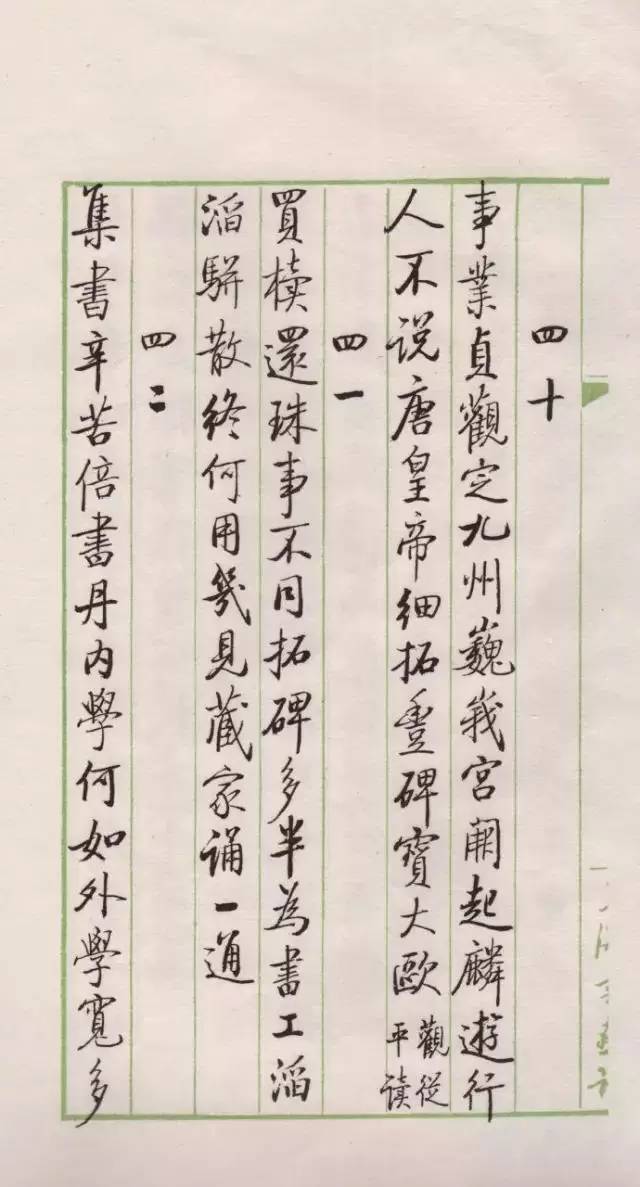 四十
事業貞觀定九州巍峩宮闕起麟遊行
人不说唐皇帝细拓豐碑寶大歐觀從平读
四一
買櫝還珠事不同拓碑多半為書工滔
滔駢散終何用幾見藏家誦一通
四二
集書辛苦倍書丹内學何如外學寬多